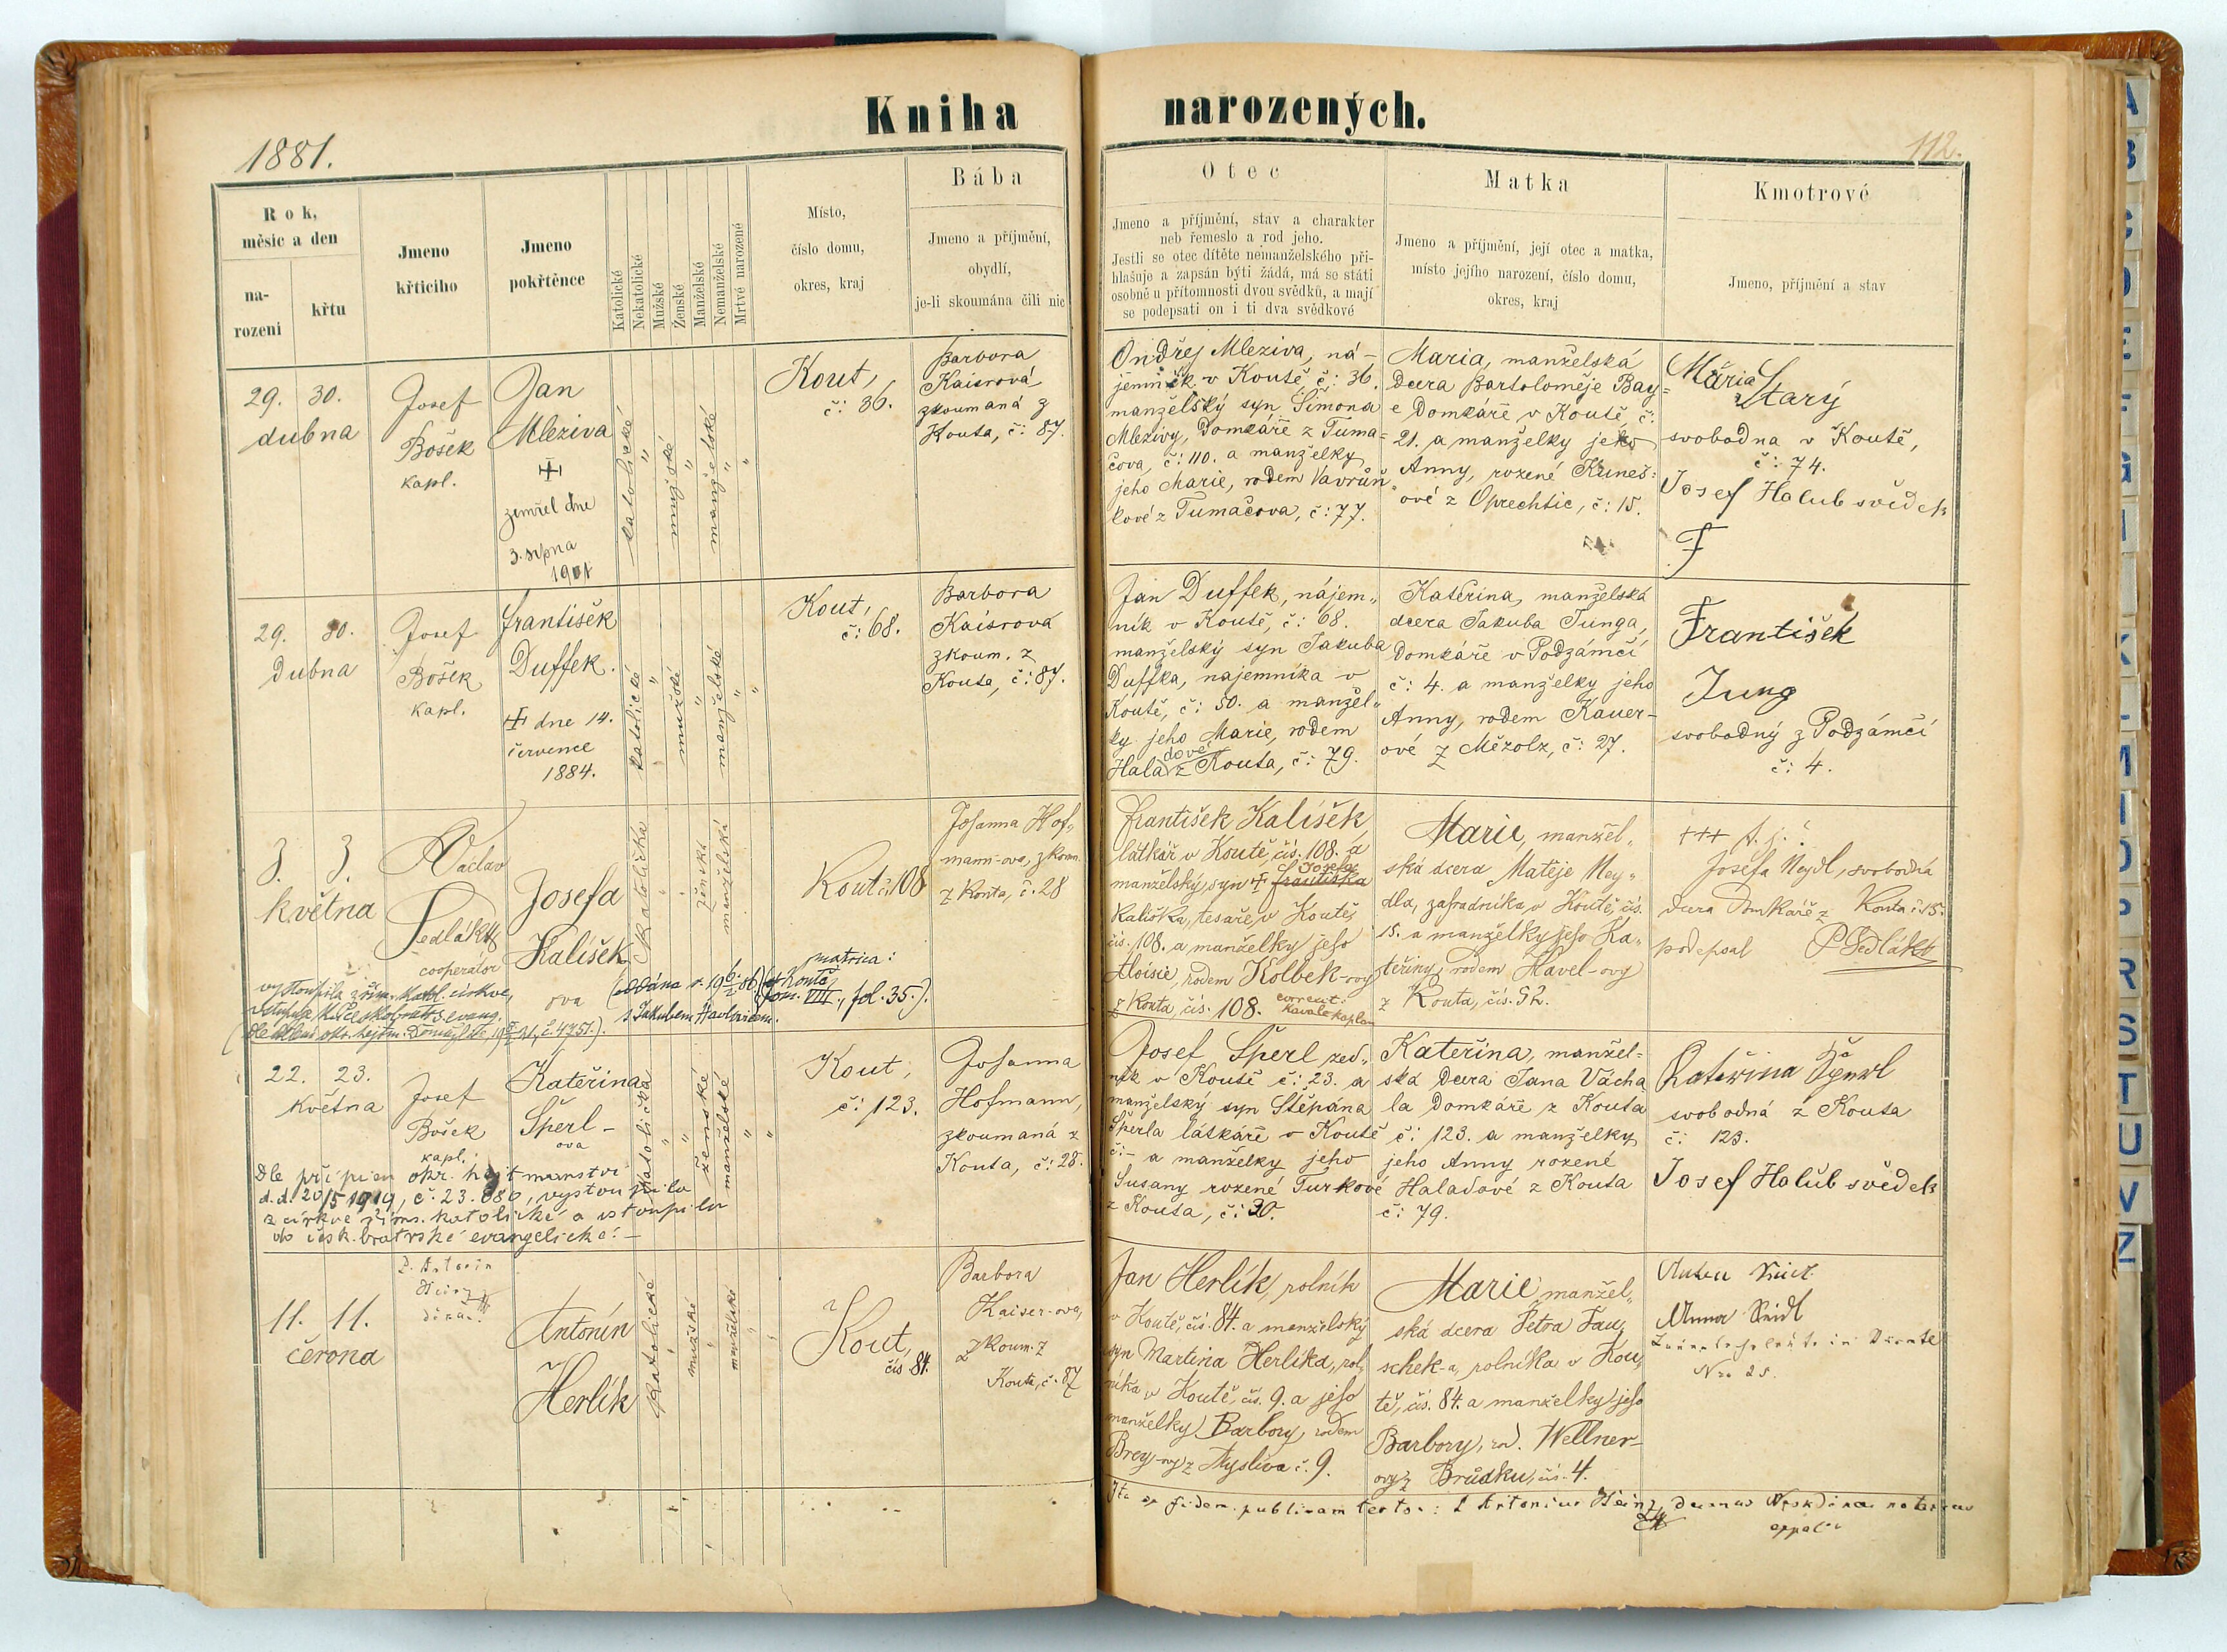 Kniha narozených.
1881.
112.
Rok,
měsíc a den
na-
rození
křtu
Jmeno
křticího
Jmeno
pokřtěnce
Katolické
Nekatolické
Mužské
Ženské
Manželské
Nemanželské
Mrtvé narozené
Místo,
číslo domu,
okres, kraj
Bába
Jmeno a příjmění,
obydlí,
je-li skoumána čili nic
Otec
Jmeno a příjmění, stav a charakter
neb řemeslo a rod jeho.
Jestli se otec dítěte nemanželského při-
hlašuje a zapsán býti žádá, má se státi
osobně u přítomnosti dvou svědků, a mají
se podepsati on i ti dva svědkové
Matka
Jmeno a příjmění, její otec a matka,
místo jejího narození, číslo domu,
okres, kraj
Kmotrové
Jmeno, příjmění a stav
29. 30.
dubna
Josef
Bošek
kapl.
Jan
Mleziva
zemřel dne
3. srpna
1901
katolické
mužské
manželské
Kout,
č: 36.
Barbora
Kaisrová
zkoumaná z
Kouta, č: 87.
Ondřej Mleziva, ná-
jemník v Koutě, č: 36.
manželský syn Šimona
Mlezivy, domkáře z Tuma=
čova, č: 110. a manželky
jeho Marie, rodem Vavruň
kové z Tumačova, č: 77.
Maria, manželská
dcera Bartoloměje Bay=
e domkáře v Koutě, č:
21. a manželky jeho
Anny, rozené Kuneš=
ové z Oprechtic, č: 15.
Mária
Starý
svobodna v Koutě,
č: 74.
Josef Holub svědek
F
29. 30.
dubna
Josef
Bošek
kapl.
František
Duffek.
dne 14.
července
1884.
katolické
mužské
manželské
Kout,
č: 68.
Barbora
Kaisrova
zkoum. z
Kouta, č: 87.
Jan Duffek, nájem„
ník v Koutě, č: 68.
manželský syn Jakuba
Duffka, najemníka v
Koutě, č: 50. a manžel„
ky jeho Marie, rodem
dové
Hala z Kouta, č: 79.
Kateřina, manželská
dcera Jakuba Junga,
domkáře v Podzámčí
č: 4. a manželky jeho
Anny, rodem Kauer-
ové z Mězolz, č: 27.
František
Jung
svobodný z Podzámčí
č: 4.
3. 3.
května
Václav
Sedlák
cooperátor
Josefa
Kalíšek
ova
Katolická
ženská
manželská
Kout č. 108
Johanna Hof„
mann-ova, zkoum.
z Kouta, č. 28
František Kalíšek
látkář v Koutě, čís. 108. a
Josefa
manželský syn + Františka
Kalíška, tesaře, v Koutě
čís. 108. a manželky jeho
Aloisie, rodem Kolbek-ovy
z Kouta, čís. 108.
Marie, manžel„
ská dcera Matěje Ney„
dla, zahradníka, v Koutě, čís.
15. a manželky jeho Ka„
teřiny, rodem Havel-ovy
z Kouta, čís. 52.
+++
Josefa Neydl, svobodná
dcera domkáře z Kouta č. 15.
podepsal P Sedlák
vystoupila z řím. katol. církve,
matrica:
s Jakubem Havlovicem.
fol. 35.).
22. 23.
května
Josef
Bošek
kapl.
Kateřina
Šperl-
ova
katolické
ženské
manželské
Kout,
č: 123.
Johanna
Hofmann,
zkoumaná z
Kouta, č: 28.
Josef Šperl zed„
ník v Koutě č: 23. a
manželský syn Štěpána
Šperla látkáře v Koutě
č: - a manželky jeho
Susany rozené Turkové
z Kouta, č: 30.
Kateřina, manžel=
ská dcera Jana Vácha
la domkáře z Kouta
č: 123. a manželky
jeho Anny rozené
Haladové z Kouta
č: 79.
Kateřina
svobodná z Kouta
č: 123.
Josef Holub svědek
Dle přípisu okr. hejtmanství
d.d. 20/5 1919, č. 23.080, vystoupila
z církve řims. katolické a vstoupila
do česk. bratrské evangelické. -
11. 11.
června
P. Antonín
Antonín
Herlík
Katolické
mužské
manželské
Kout,
čís. 84.
Barbora
Kaiser-ova,
zkoum. z
Kouta, č. 87
Jan Herlík, rolník
v Koutě, čís. 84. a manželský
syn Martina Herlíka, rol„
níka v Koutě, čís. 9. a jeho
manželky Barbory, rodem
Brey-ovy z Myslíva č. 9.
Marie, manžel„
ská dcera Petra Tau„
schek-a, rolníka v Kou„
tě, čís. 84. a manželky jeho
Barbory, rod. Wellner-
ovy z Brůdku, čís. 4.
Anna
Nro 25.
Ita ad fidem publicam testor: P Antonius